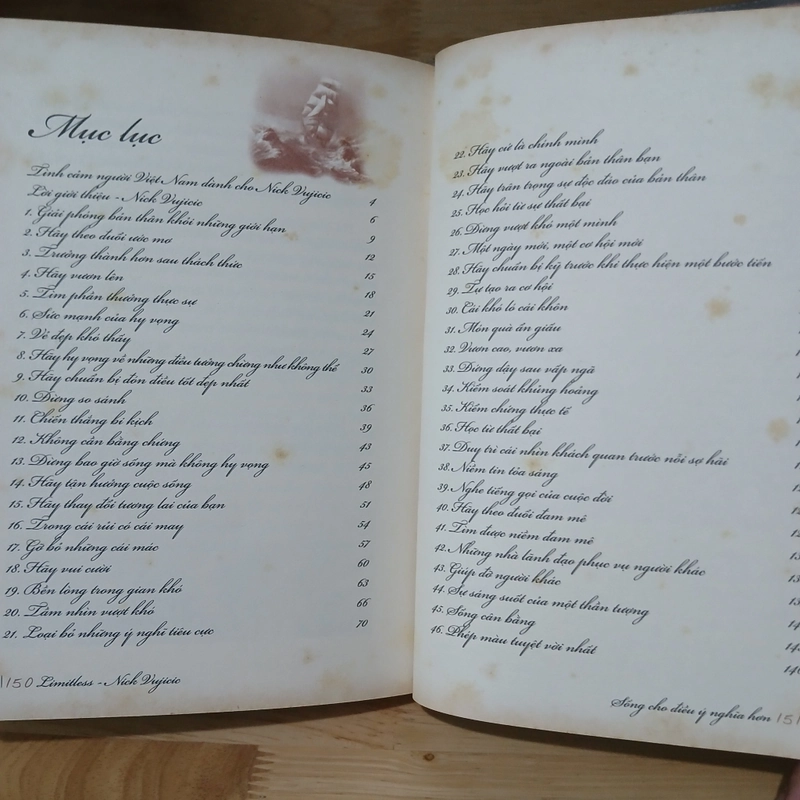 Mục lục
Tình cảm người Việt Nam dành cho Nick Vujicic 4
Lời giới thiệu - Nick Vujicic 6
1. Giải phóng bản thân khỏi những giới hạn 9
2. Hãy theo đuổi ước mơ 12
3. Trưởng thành hơn sau thách thức 15
4. Hãy vươn lên 18
5. Tìm phần thưởng thực sự 21
6. Sức mạnh của hy vọng 24
7. Vẻ đẹp khó thấy 27
8. Hãy hy vọng về những điều tưởng chừng như không thể 30
9. Hãy chuẩn bị đón điều tốt đẹp nhất 33
10. Đừng so sánh 36
11. Chiến thắng bi kịch 39
12. Không cần bằng chứng 43
13. Đừng bao giờ sống mà không hy vọng 45
14. Hãy tận hưởng cuộc sống 48
15. Hãy thay đổi tương lai của bạn 51
16. Trong cái rủi có cái may 54
17. Gỡ bỏ những cái mác 57
18. Hãy vui cười 60
19. Bền lòng trong gian khó 63
20. Tầm nhìn vượt khó 66
21. Loại bỏ những ý nghĩ tiêu cực 70
150 Limitless - Nick Vujicic
22. Hãy cứ là chính mình
23. Hãy vượt ra ngoài bản thân bạn
24. Hãy trân trọng sự độc đáo của bản thân
25. Học hỏi từ sự thất bại
26. Đừng vượt khó một mình
27. Một ngày mới, một cơ hội mới
28. Hãy chuẩn bị kỹ trước khi thực hiện một bước tiến
29. Tự tạo ra cơ hội
30. Cái khó ló cái khôn
31. Món quà ẩn giấu
32. Vươn cao, vươn xa
33. Đứng dậy sau vấp ngã
34. Kiểm soát khủng hoảng
35. Kiểm chứng thực tế
36. Học từ thất bại
37. Duy trì cái nhìn khách quan trước nỗi sợ hãi
38. Niềm tin tỏa sáng
39. Nghe tiếng gọi của cuộc đời
40. Hãy theo đuổi đam mê
41. Tìm được niềm đam mê
42. Những nhà lãnh đạo phục vụ người khác
43. Giúp đỡ người khác
44. Sự sáng suốt của một thần tượng
45. Sống cân bằng
46. Phép màu tuyệt vời nhất
Sống cho điều ý nghĩa hơn